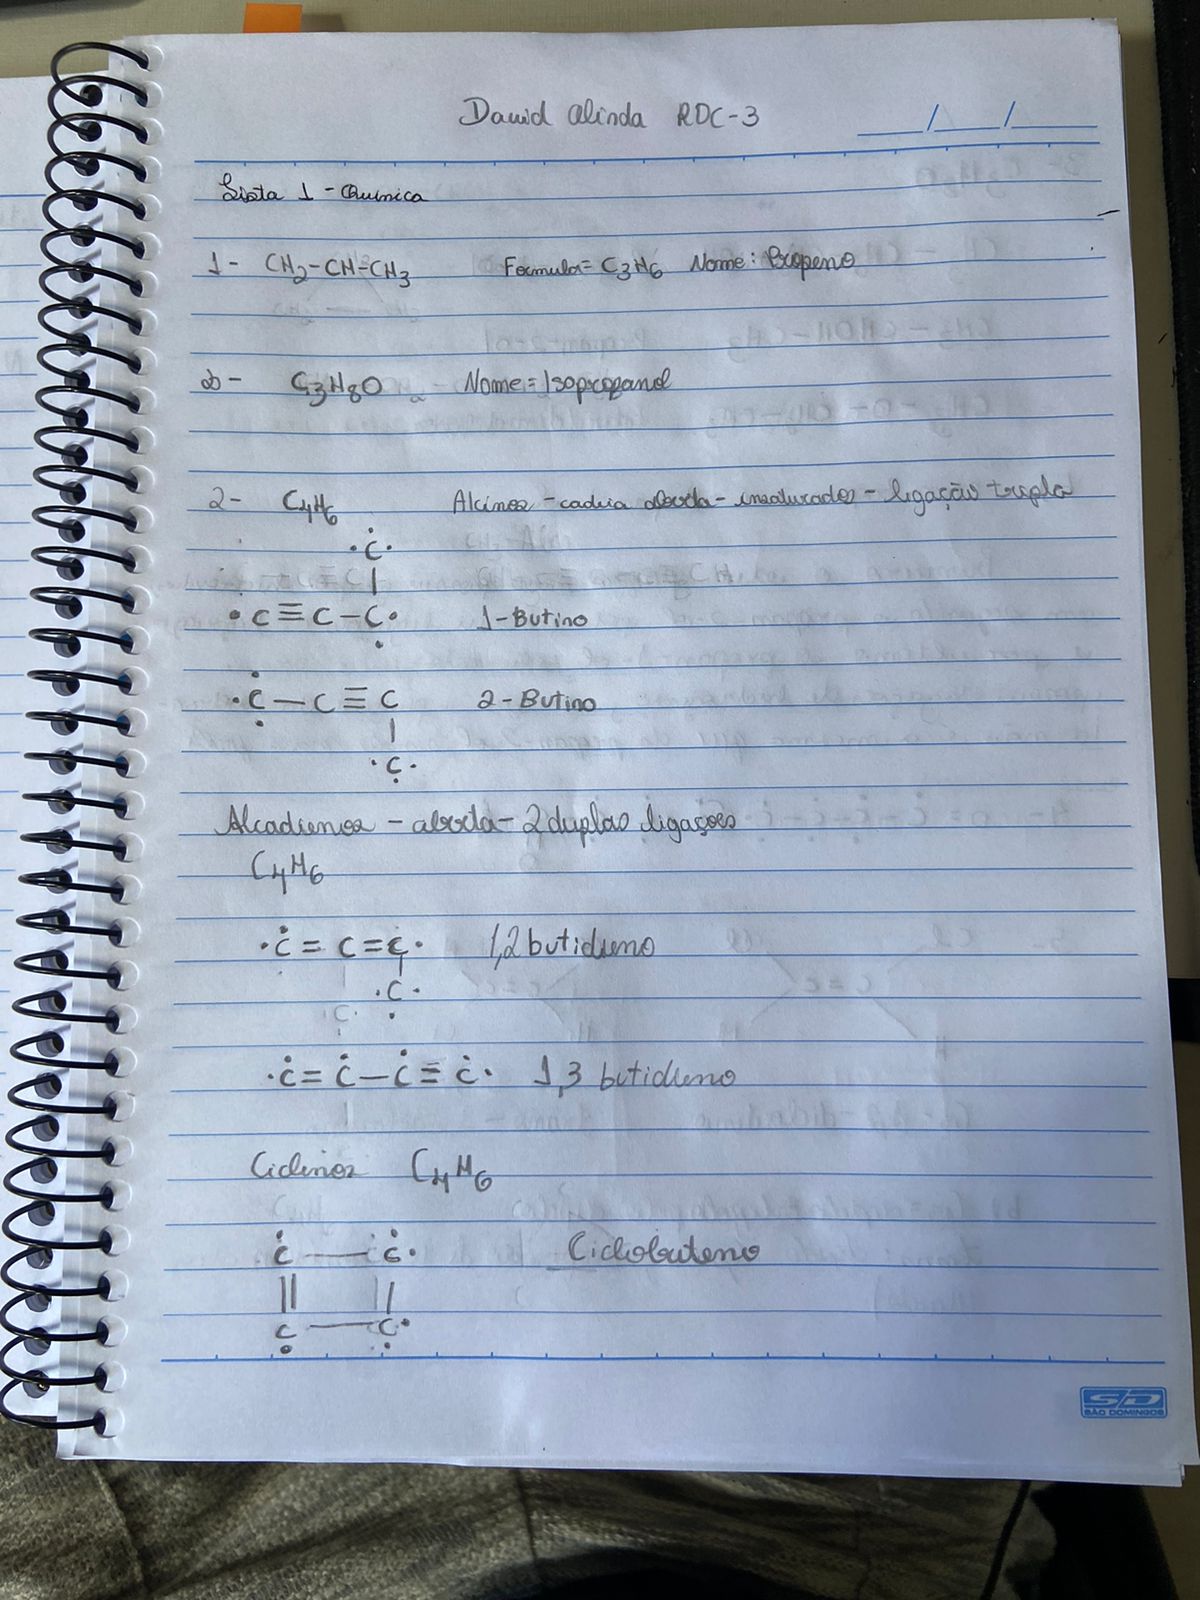 David Olinda RDC-3
___/___/___
Lista 1 - Química
1- CH2-CH-CH3 Formula= C3H6 Nome: Propeno
b- C3H8O Nome= Isopropanol
2- C4H6 Alcinos - cadeia aberta - insaturados - ligação tripla
C
C≡C-C 1-Butino
C-C≡C 2-Butino
C
Alcadienos - aberta - 2 duplas ligações
C4H6
C=C=C 1,2 butidieno
C
C=C-C=C 1,3 butidieno
Ciclenos C4H6
C-C Ciclobuteno
C-C
SD
SÃO DOMINGOS